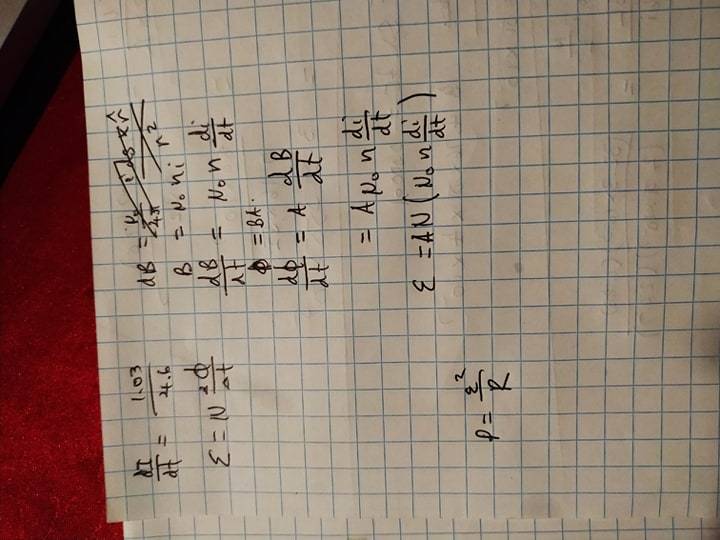 dI/dt = 1.03/4.6
ε = N ∂ϕ/∂t
P = ε²/R
dB = μ₀/4π i ds x r̂/r²
B = μ₀ n i
dB/dt = μ₀ n di/dt
ϕ = BA.
dϕ/dt = A dB/dt
= A μ₀ n di/dt
ε = AN (μ₀ n di/dt)